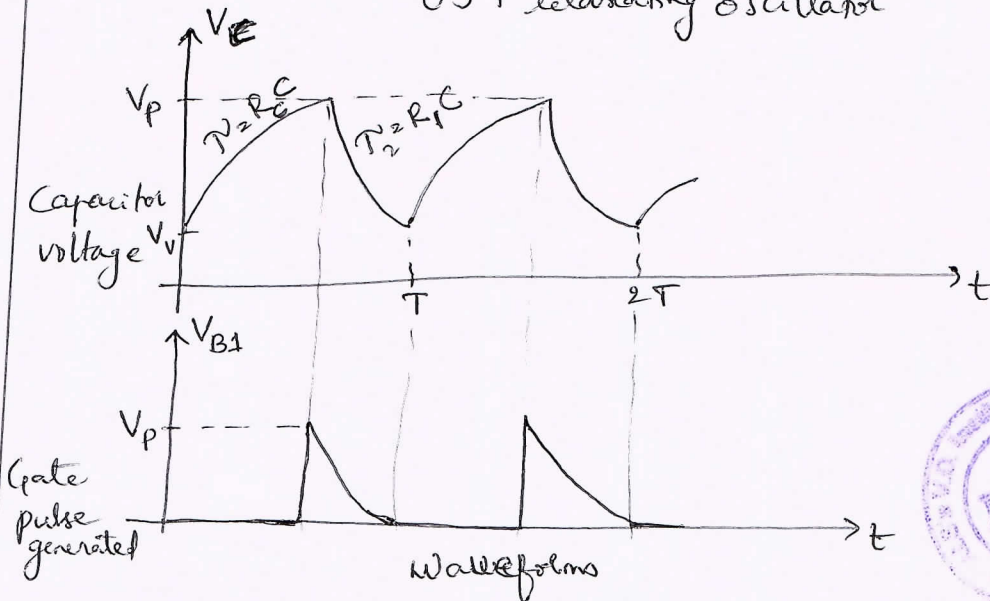 UJT relaxing oscillator
V_E
V_P
τ = R_C C
τ_2 = R_1 C
Capacitor
voltage V_V
T
2T
t
V_B1
V_P
Gate
pulse
generated
t
Waveforms